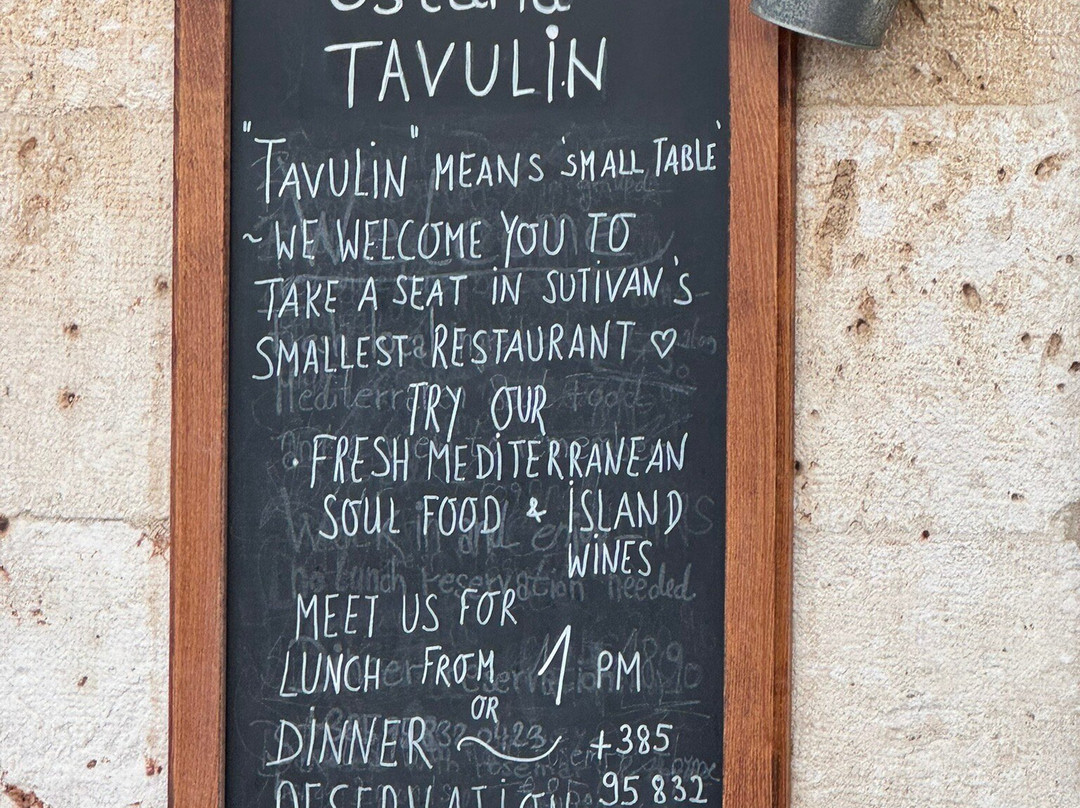 TAVULIN
"TAVULIN" MEANS 'SMALL TABLE'
~ WE WELCOME YOU TO
TAKE A SEAT IN SUTIVAN'S
SMALLEST RESTAURANT ♡
TRY OUR
• FRESH MEDITERRANEAN
SOUL FOOD & ISLAND
WINES
no lunch reservation needed
MEET US FOR
LUNCH FROM 1 PM
OR
DINNER ~ +385
RESERVATION 95 832